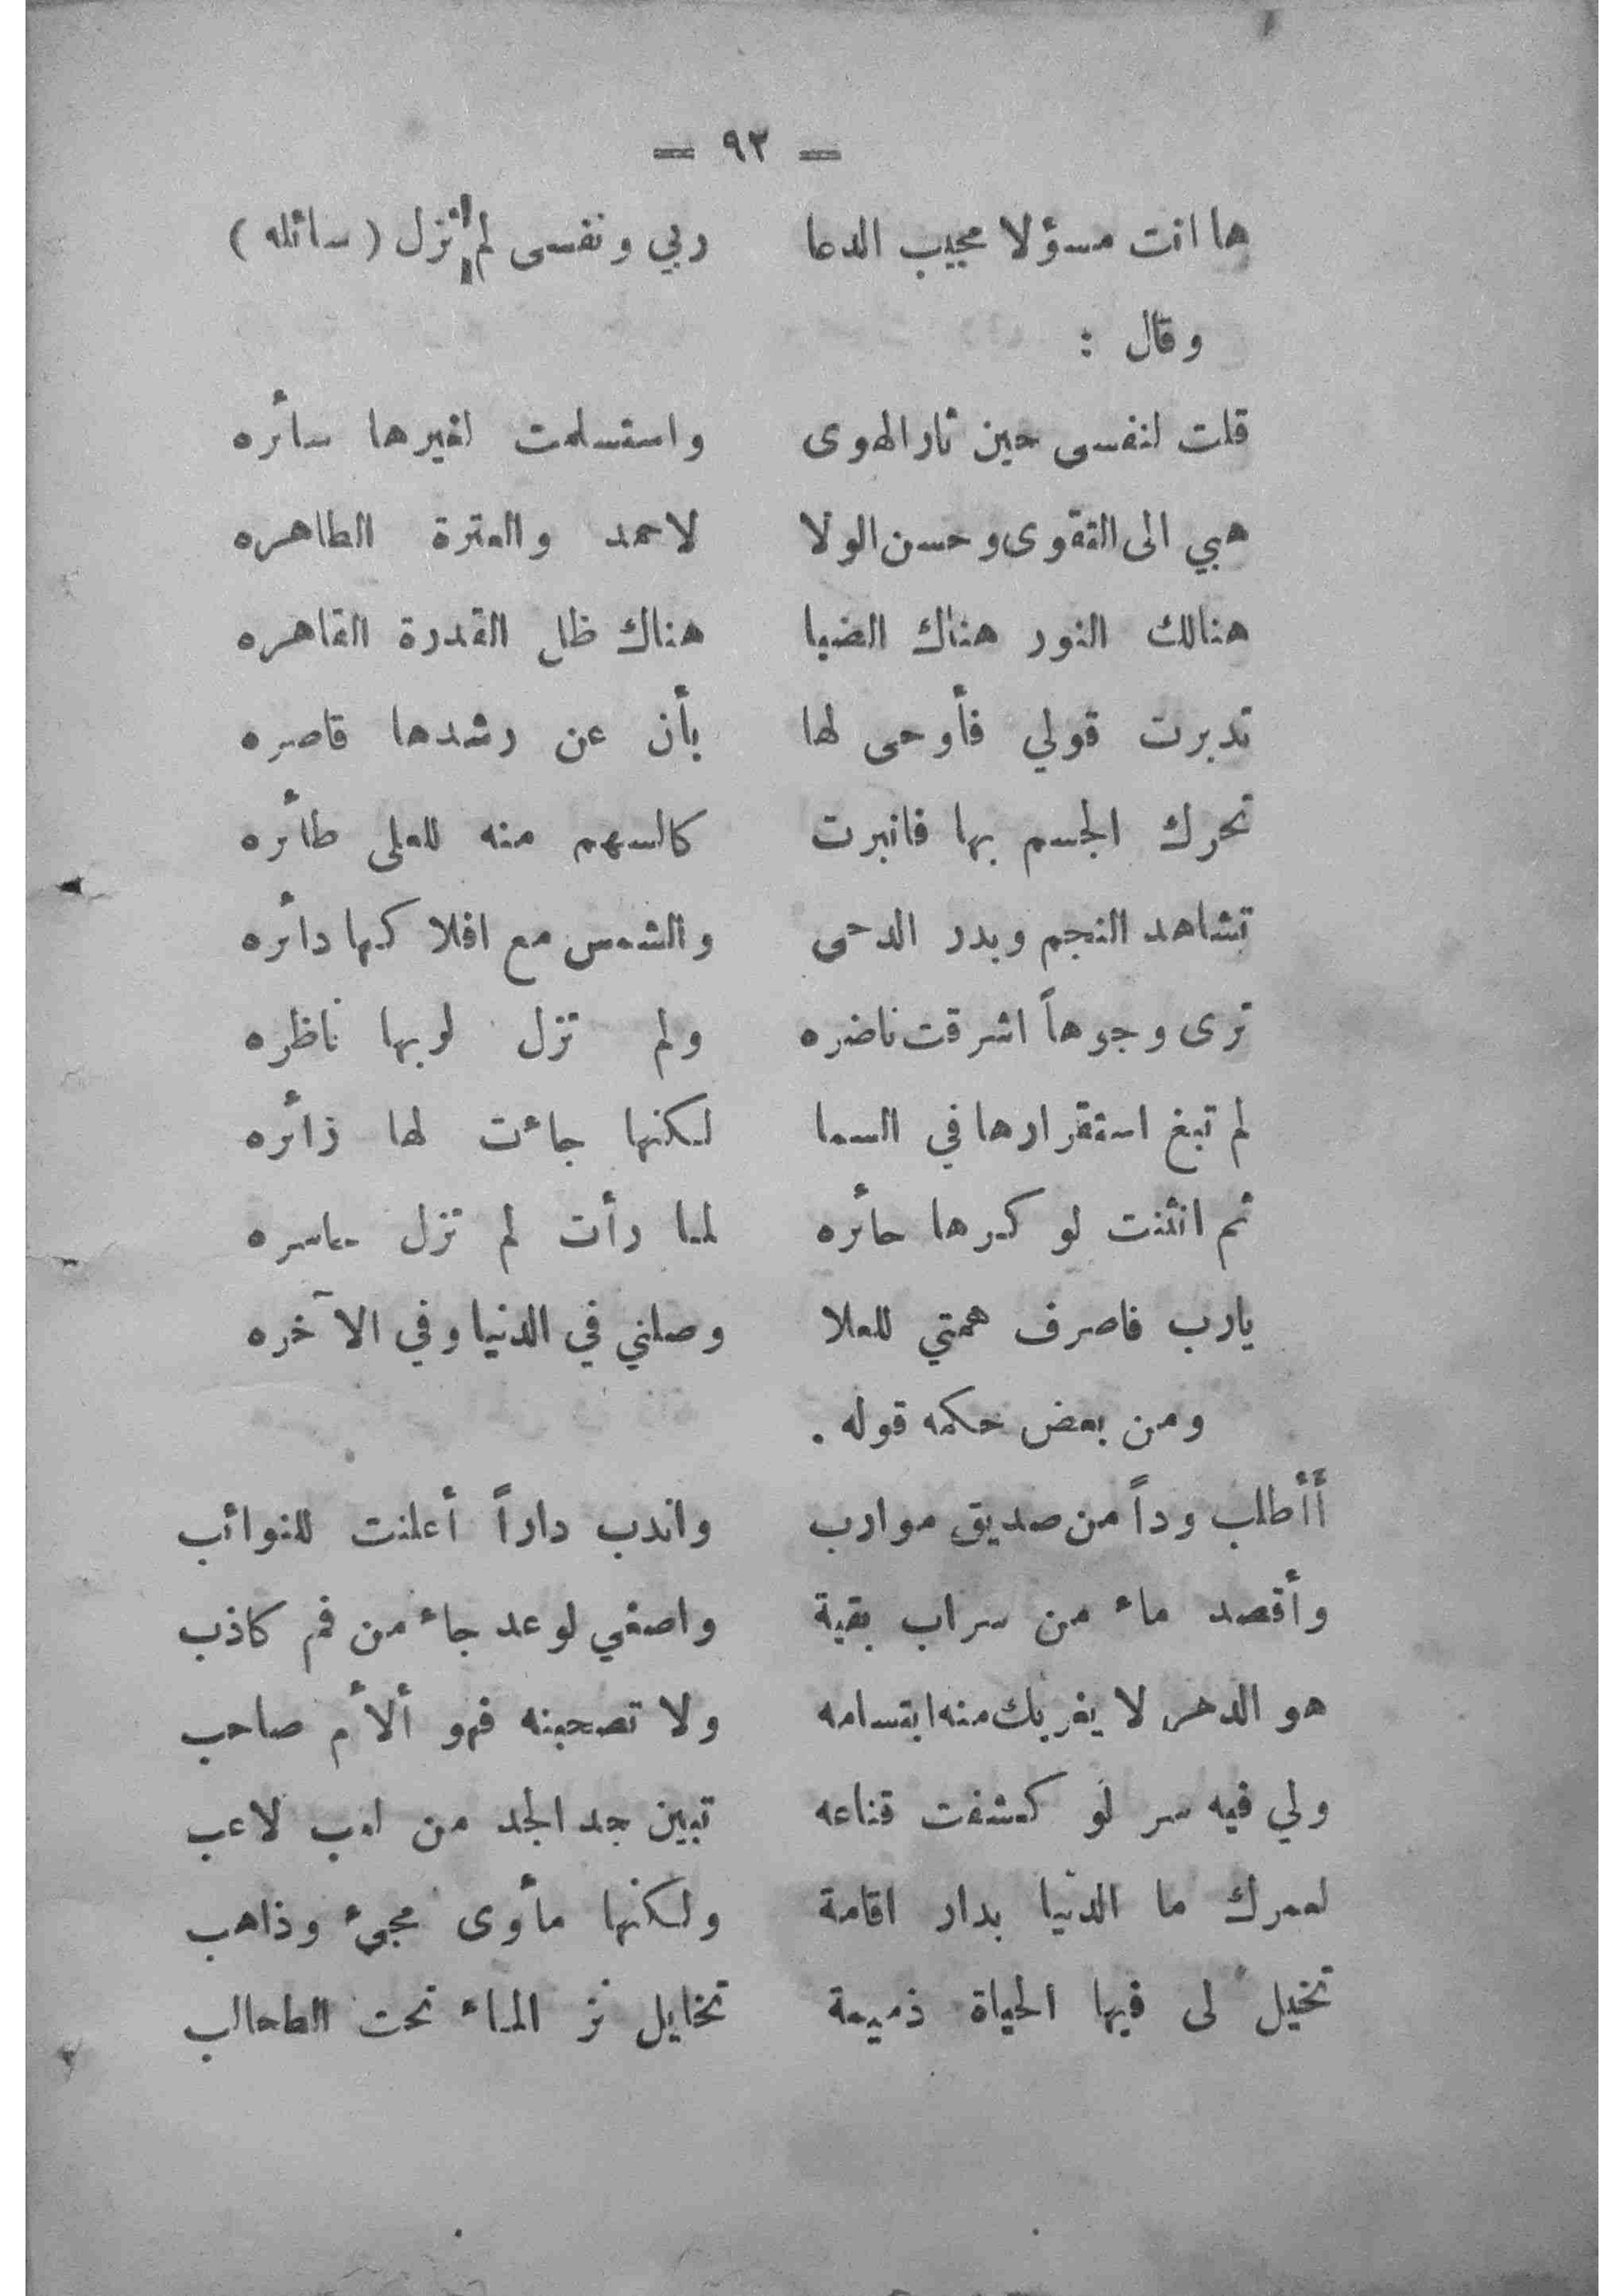 — ٩٢ —
ها انت مسؤلا مجيب الدعا ربي ونفسى لم تزل (سائله)
وقال :
قلت لنفسى حين ثار الهوى واستسلمت لغيرها سائره
هبي الى التقوى وحسن الولا لاحمد والعترة الطاهره
هنالك النور هناك الضيا هناك ظل القدرة القاهره
تدبرت قولي فأوحى لها بأن عن رشدها قاصره
تحرك الجسم بها فانبرت كالسهم منه للعلى طائره
تشاهد النجم وبدر الدحى والشمس مع افلاكها دائره
ترى وجوهاً اشرقت ناضره ولم تزل لربها ناظره
لم تبغ استقرارها في السما لكنها جاءت لها زائره
ثم انثنت لوكرها حائره لما رأت لم تزل
يارب فاصرف همتي للعلا وصلني في الدنيا وفي الآخره
ومن بعض حكمه قوله .
أأطلب وداً من صديق موارب واندب داراً أعلنت للنوائب
وأقصد ماء من سراب بقية واصغي لوعد جاء من فم كاذب
هو الدهر لا يغربك منه ابتسامه ولا تصحبنه فهو ألأم صاحب
ولي فيه سر لو كشفت قناعه تبين جد الجد من لعب لاعب
لعمرك ما الدنيا بدار اقامة ولكنها مأوى مجيء وذاهب
تخيل لى فيها الحياة ذميمة تخايل نز الماء تحت الطحالب